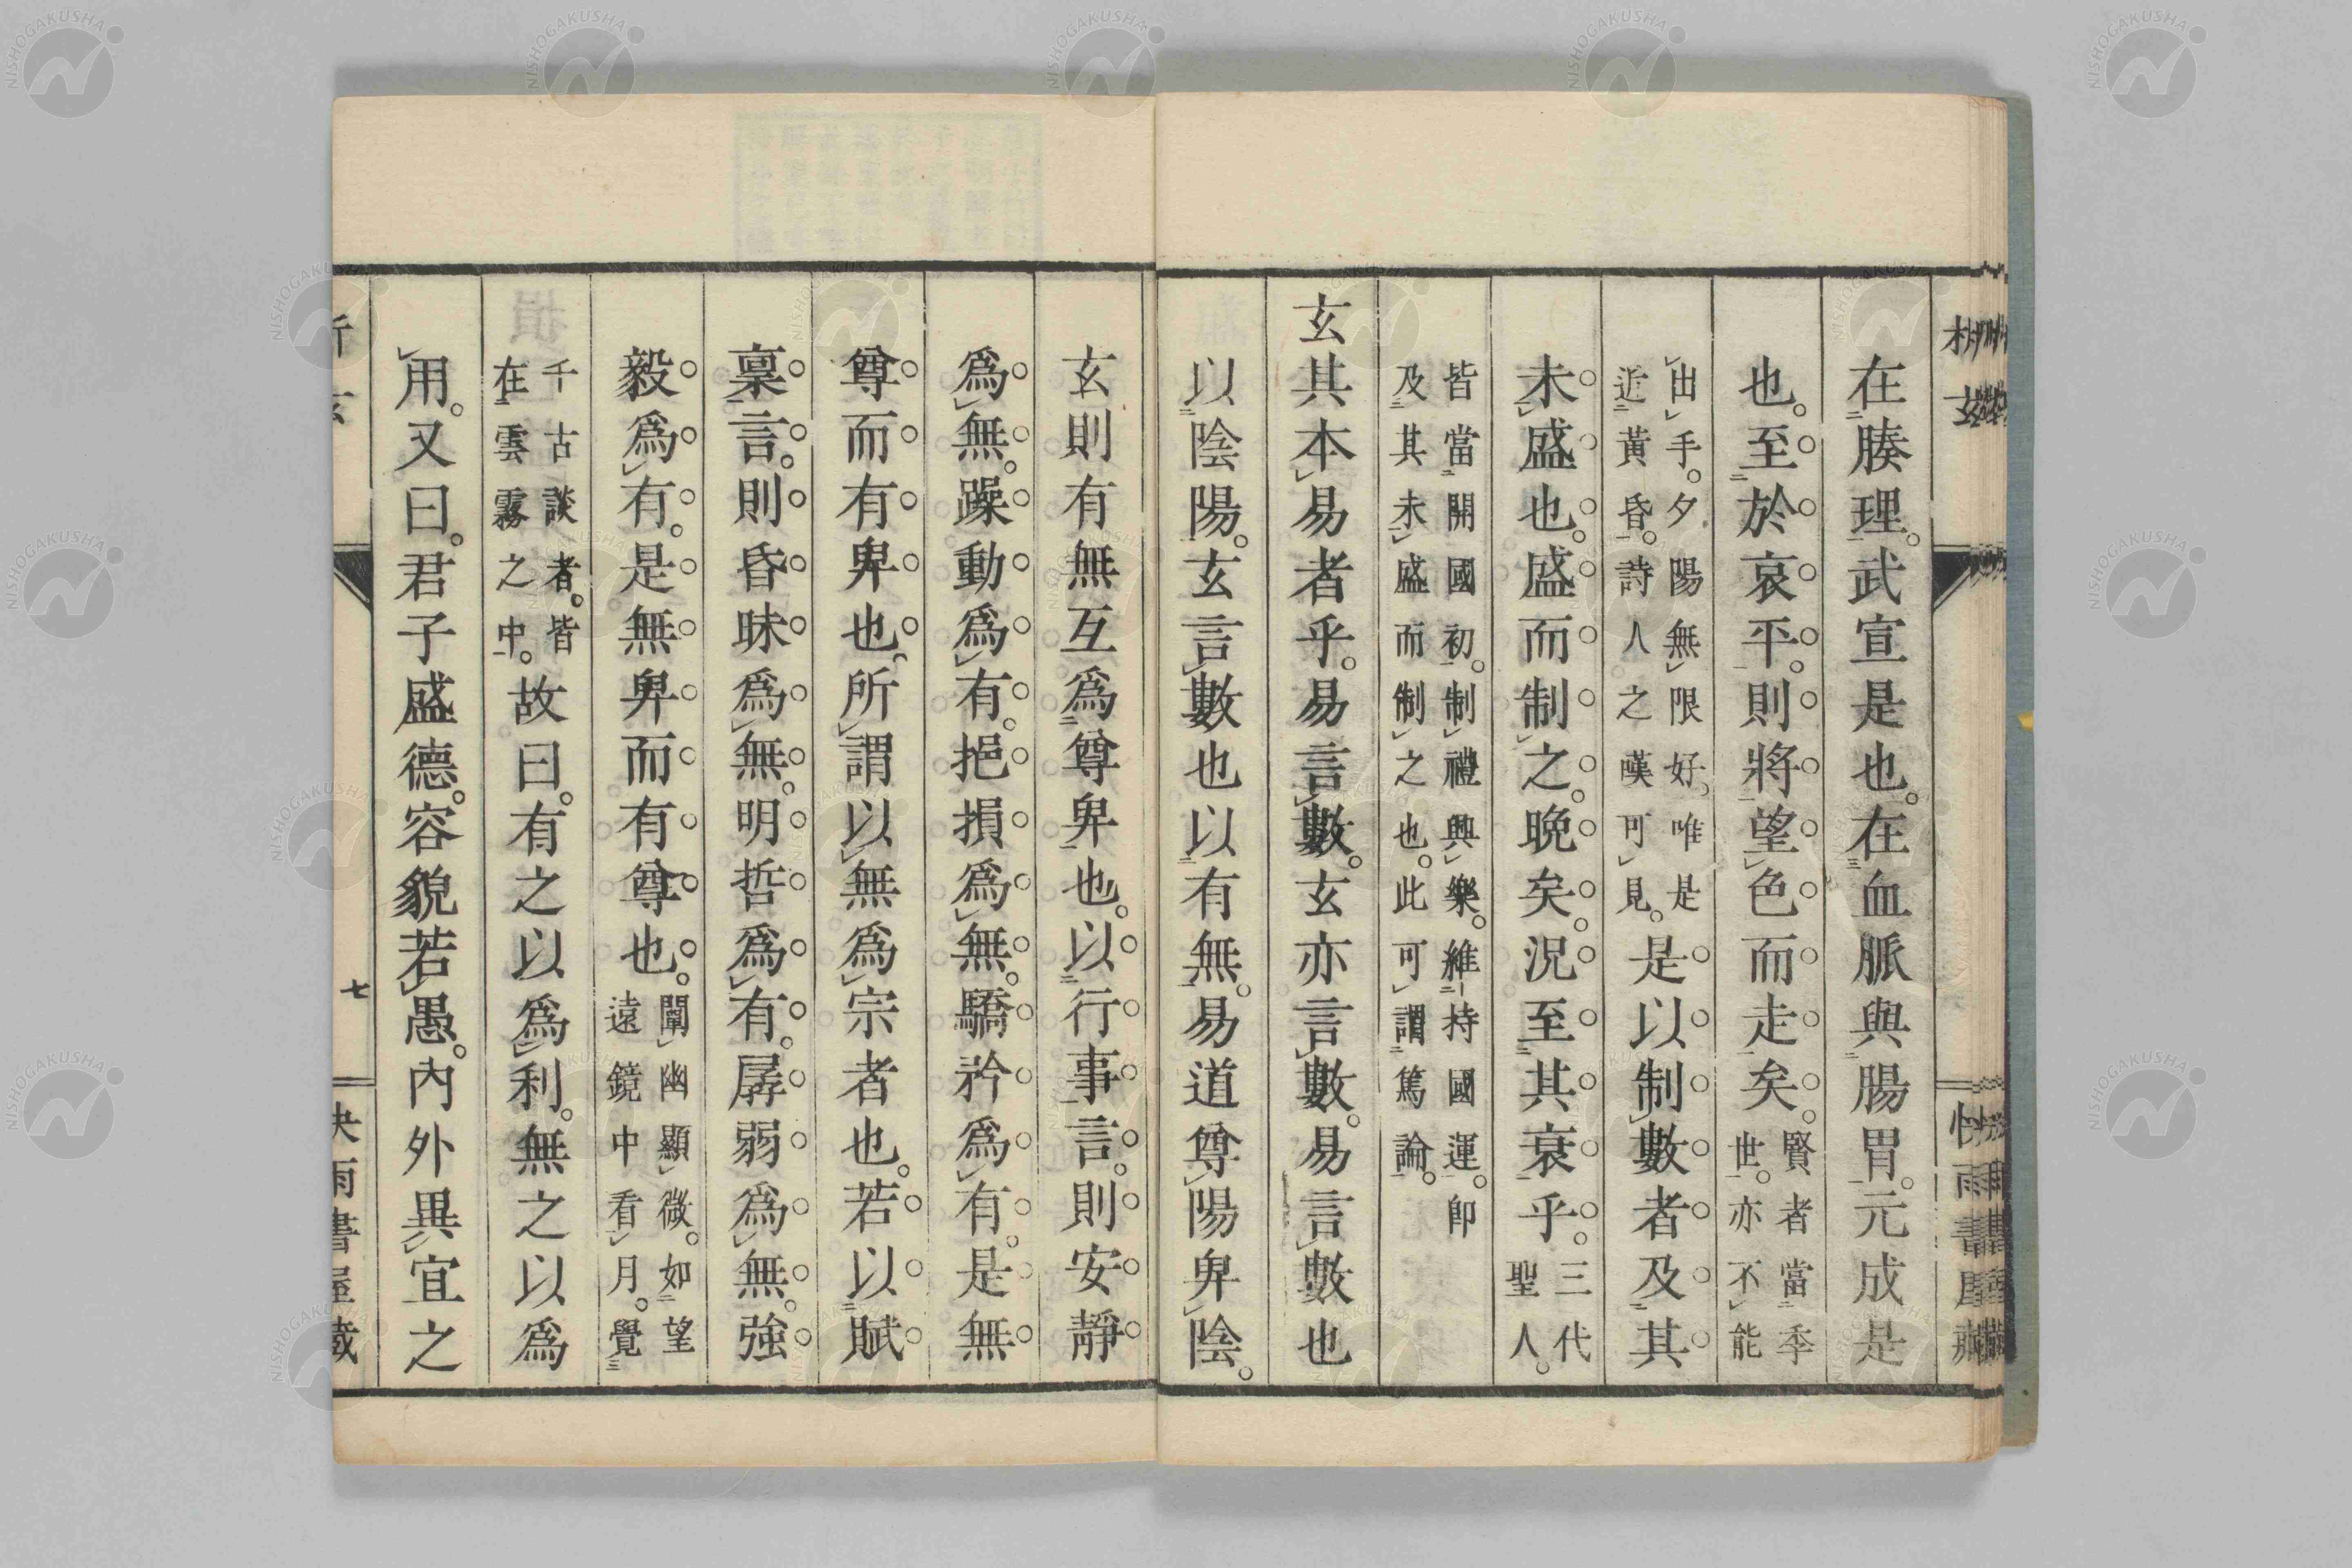 在腠理。武宣是也。在血脈與腸胃。元成是
也。至於哀平。則將望色而走矣。賢者當季世。亦不能
出手。夕陽無限好、唯是近黃昏。詩人之嘆可見。是以制數者及其
未盛也。盛而制之。晚矣。況至其衰乎。三代聖人。
皆當開國初。制禮興樂。維持國運。卽及其未盛而制之也。此可謂篤論。
玄其本易者乎。易言數。玄亦言數。易言數也
以陰陽。玄言數也以有無。易道尊陽卑陰。
玄則有無互爲尊卑也。以行事言。則安靜
爲無。躁動爲有。挹損爲無。驕矜爲有。是無
尊而有卑也。所謂以無爲宗者也。若以賦
稟言。則昏昧爲無。明哲爲有。孱弱爲無。強
毅爲有。是無卑而有尊也。闡幽顯微。如望遠鏡中看月。覺
千古談者。皆在雲霧之中。故曰。有之以爲利。無之以爲
用。又曰。君子盛德。容貌若愚。內外異宜之
七
快雨書屋藏